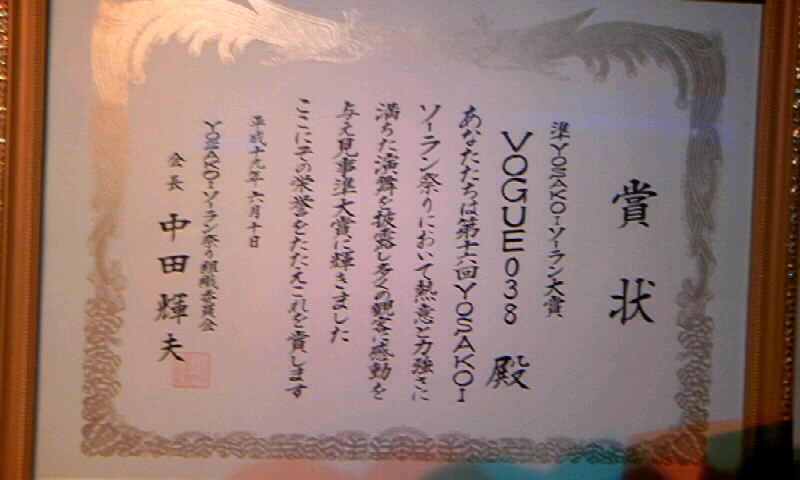 賞状
準YOSAKOIソーラン大賞
VOGUE038 殿
あなたたちは第十六回YOSAKOI
ソーラン祭りにおいて熱意と力強さに
満ちた演舞を披露し多くの観客に感動を
与え見事準大賞に輝きました
ここにその栄誉をたたえこれを賞します
平成十九年六月十日
YOSAKOIソーラン祭り組織委員会
会長 中田輝夫